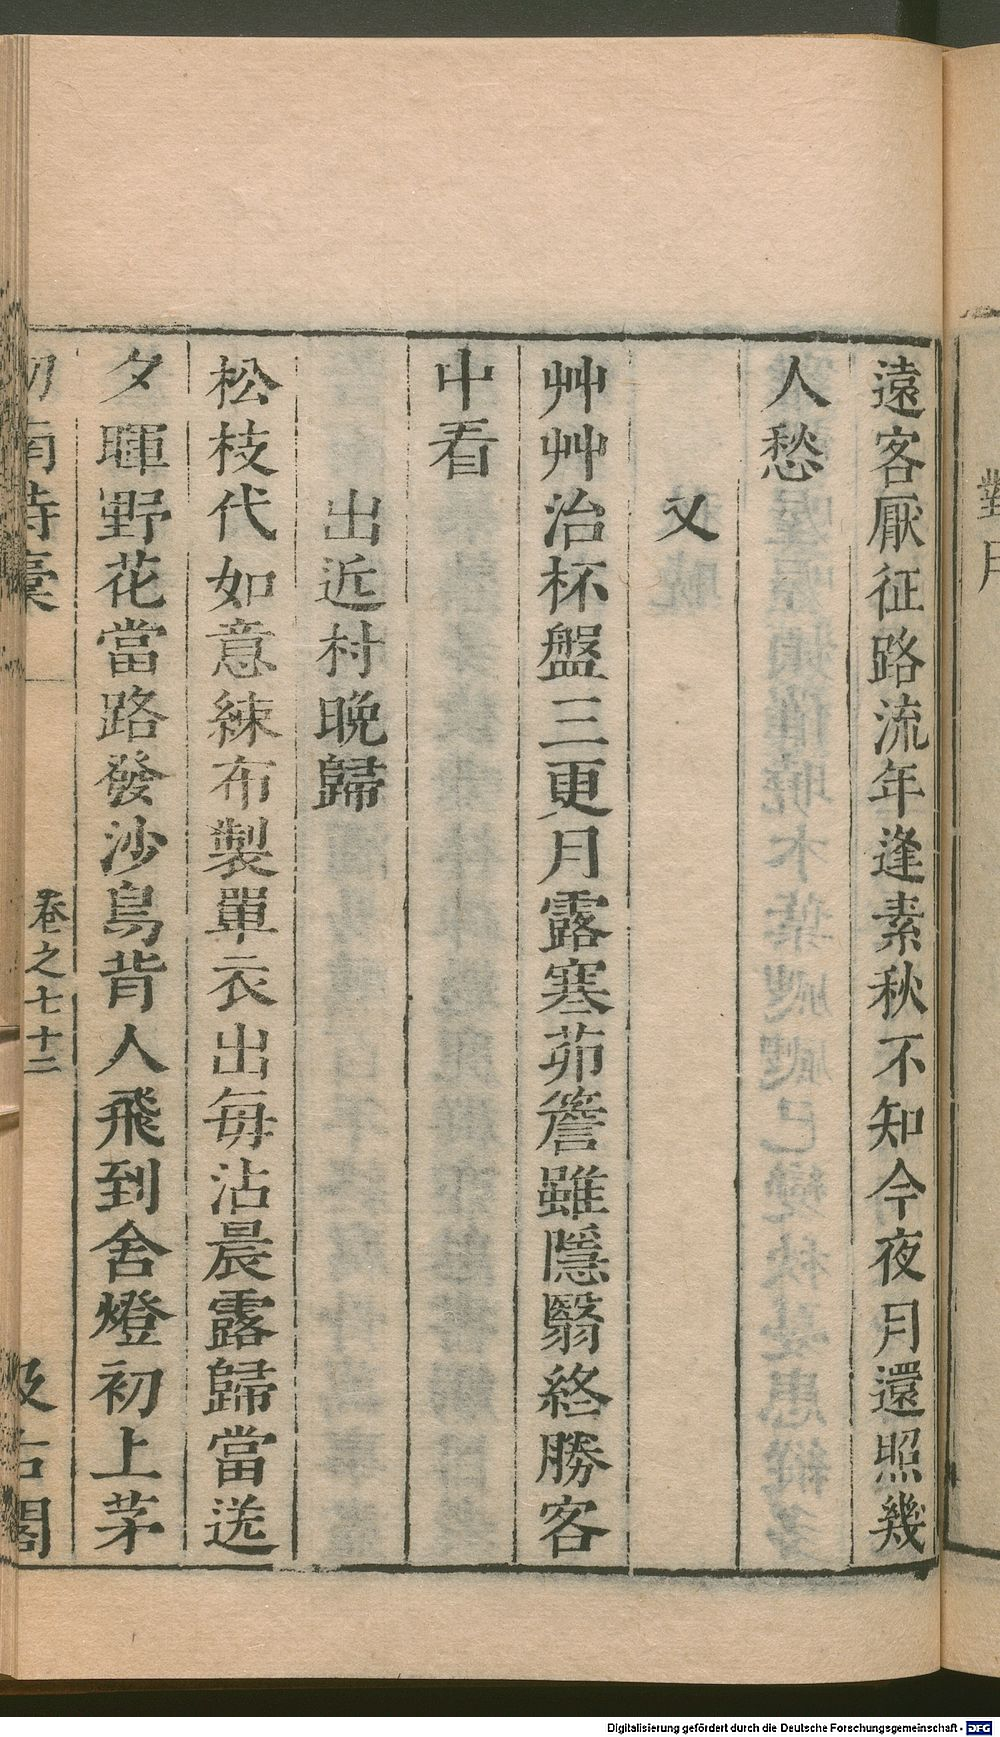 遠客厭征路流年逢素秋不知今夜月還照幾
人愁
又
艸艸治杯盤三更月露寒茆簷雖隱翳終勝客
中看
出近村晚歸
松枝代如意練布製單衣出每沾晨露歸當送
夕暉野花當路發沙鳥背人飛到舍燈初上茅
卷之七十二
對月
Digitalisierung gefördert durch die Deutsche Forschungsgemeinschaft - DFG